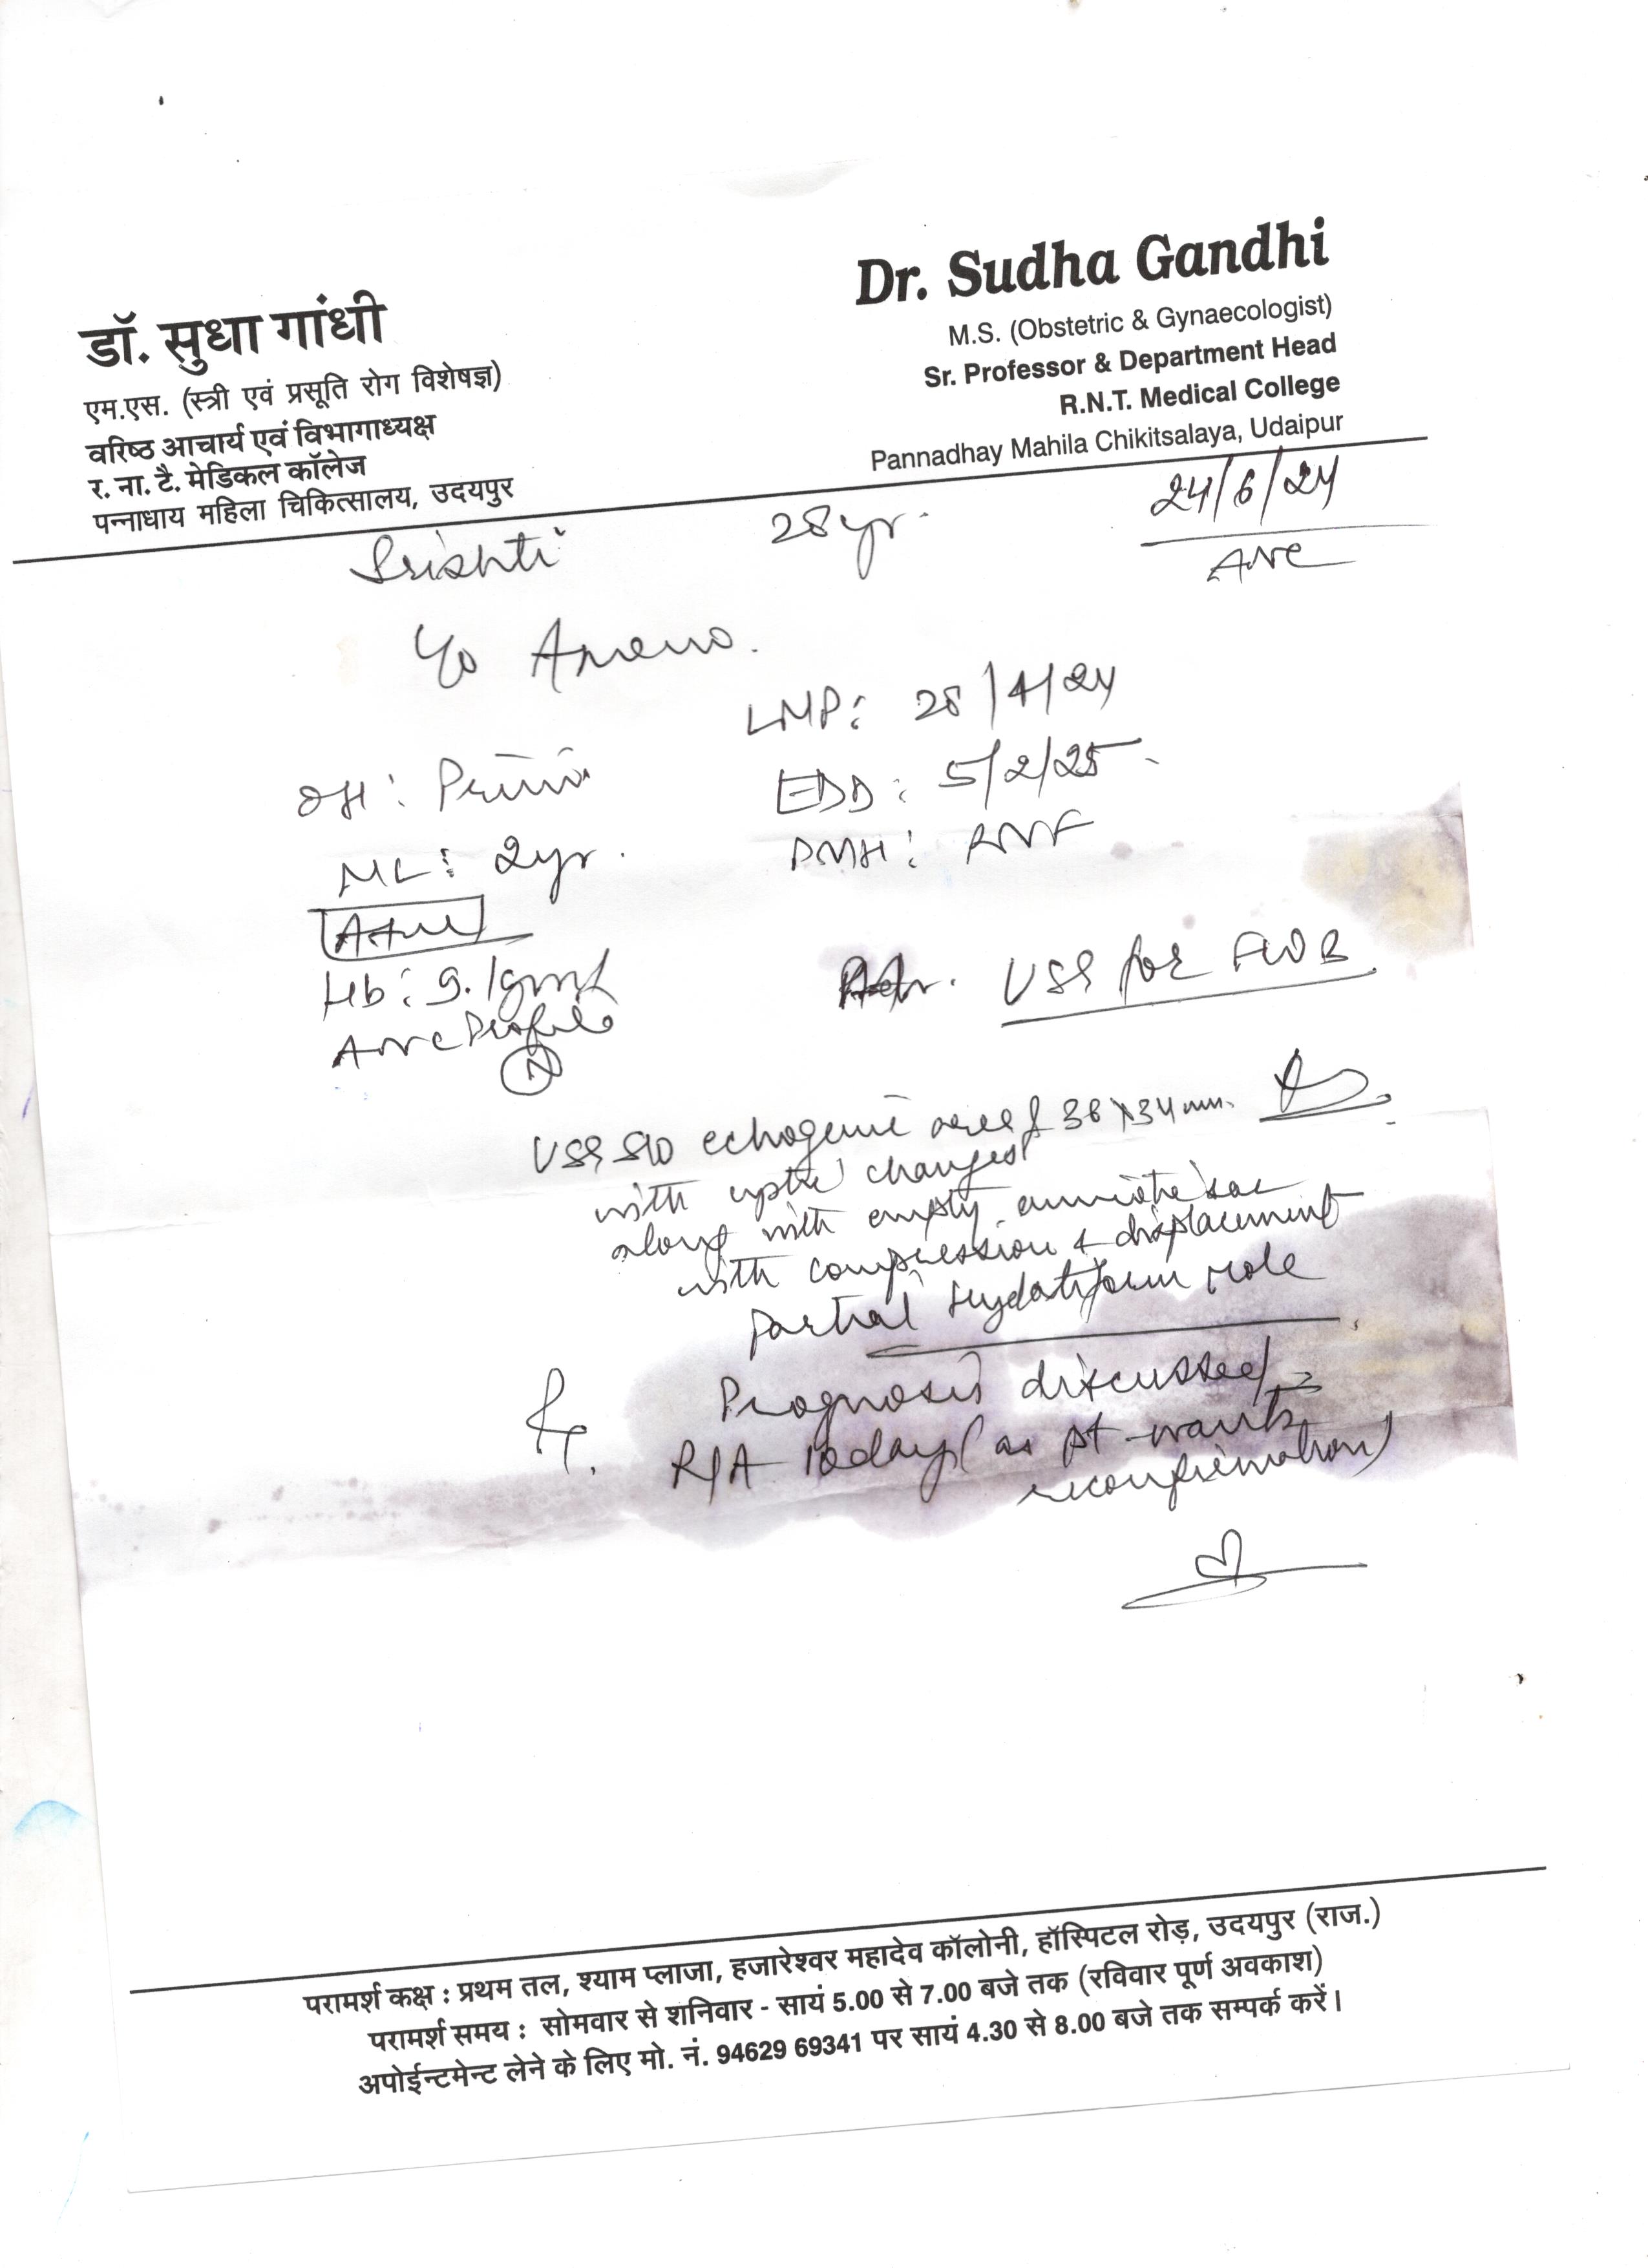 डॉ. सुधा गांधी
एम.एस. (स्त्री एवं प्रसूति रोग विशेषज्ञ)
वरिष्ठ आचार्य एवं विभागाध्यक्ष
र. ना. टै. मेडिकल कॉलेज
पन्नाधाय महिला चिकित्सालय, उदयपुर
Dr. Sudha Gandhi
M.S. (Obstetric & Gynaecologist)
Sr. Professor & Department Head
R.N.T. Medical College
Pannadhay Mahila Chikitsalaya, Udaipur
24/6/24
ANC
Srishti 28 yr.
LMP: 28/4/24
OH: Primi
EDD: 5/2/25
ML: 2yr.
PMH:
Hb: 9.1gm%
ANC Profile
N
USG for FWB
USG S/O echogenic area of 36x34 mm.
with cystic changes
along with empty amniotic sac
with compression & displacement
Partial Hydatiform mole
Rx. Prognosis discussed
R/A today (as pt wants
reconfirmation)
परामर्श कक्ष : प्रथम तल, श्याम प्लाजा, हजारेश्वर महादेव कॉलोनी, हॉस्पिटल रोड़, उदयपुर (राज.)
परामर्श समय : सोमवार से शनिवार - सायं 5.00 से 7.00 बजे तक (रविवार पूर्ण अवकाश)
अपोईन्टमेन्ट लेने के लिए मो. नं. 94629 69341 पर सायं 4.30 से 8.00 बजे तक सम्पर्क करें।